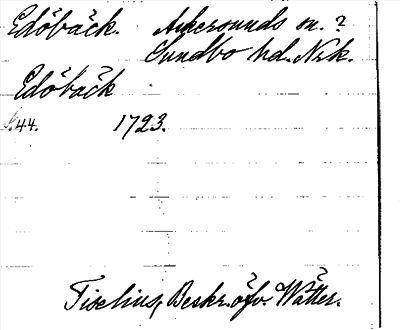 Edöbäck. Askersunds sn. ?
Sundbo hd. Nrk.
Edöbäck
S. 44. 1723.
Tiselius, Beskr. öfv. Wätter.